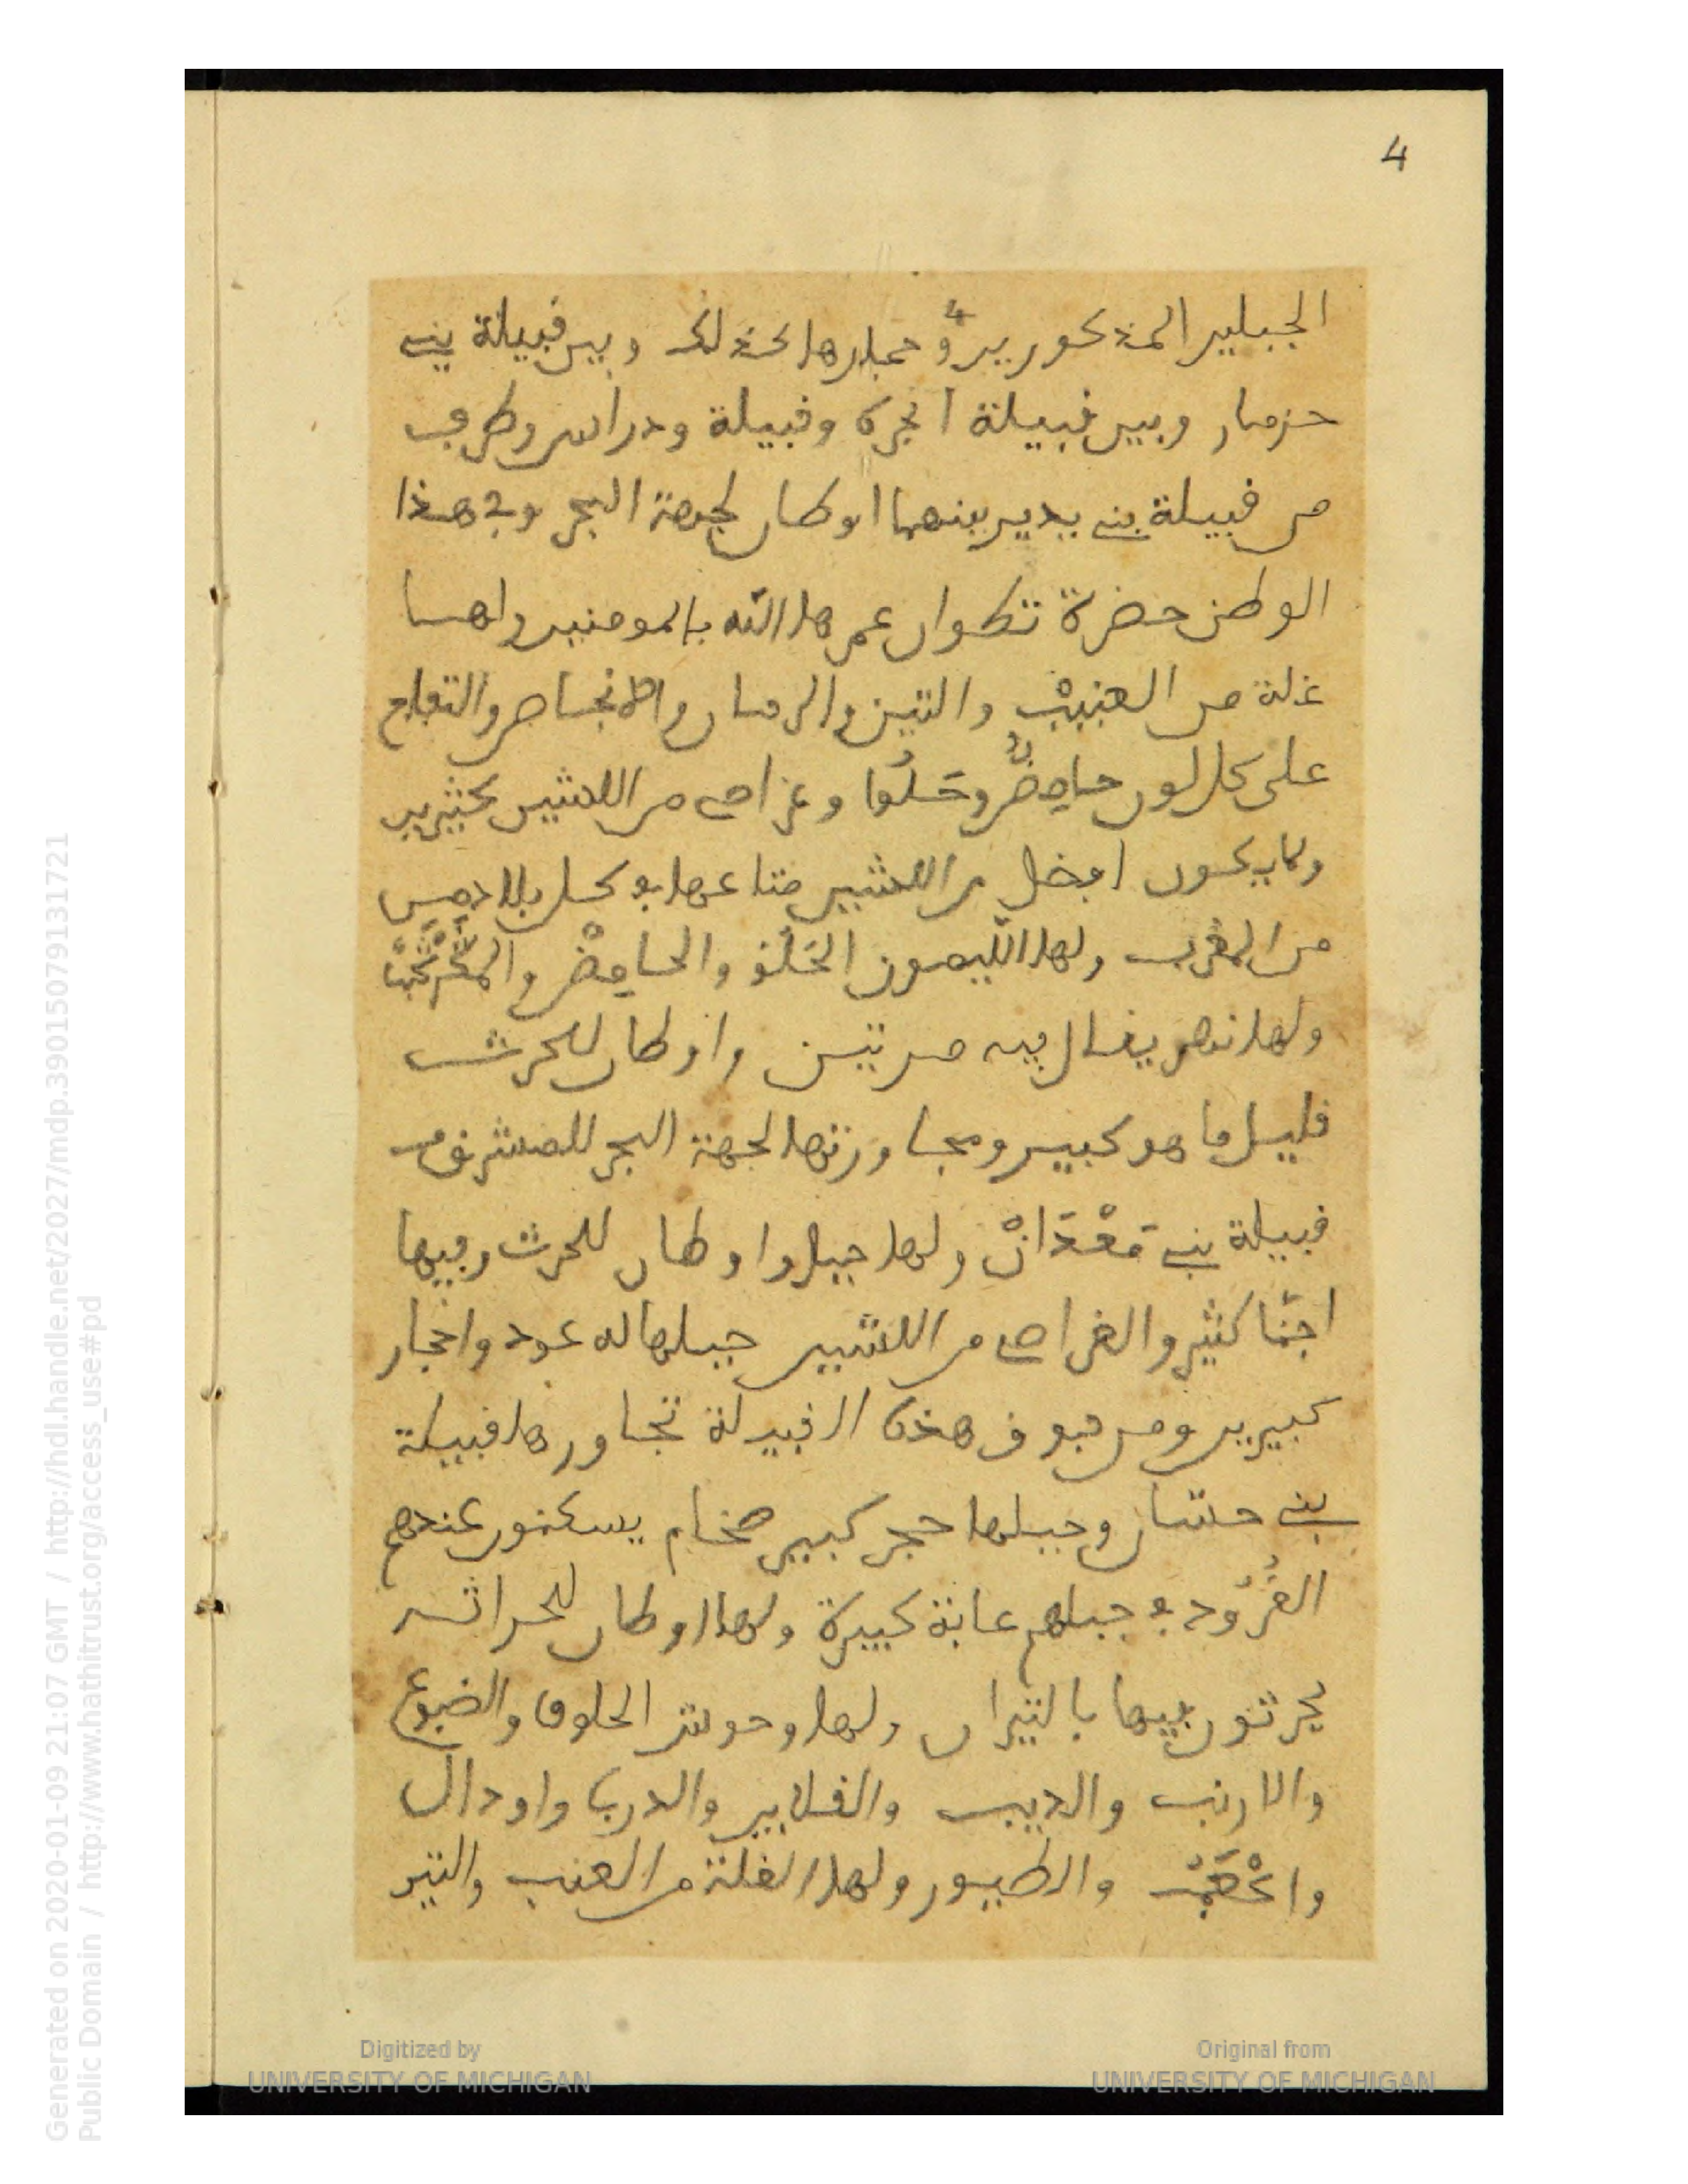 4
الجبلين المذكورين و حجارها كذلك وبين قبيلة بني
حزمار وبين قبيلة انجرة وقبيلة ودراس وطرف
من قبيلة بني يدير بينهما اوطان لجهة البحر وفي هذا
الوطن حضرة تطوان عمرها الله بالمومنين ولها
غلة من العنب والتين والرمان والانجاص والتفاح
على كل لون حامض وحلوا وغراس من اللشين كثيرين
ولا يكون افضل من اللشين متاعها في كل بلاد
من المغرب ولها الليمون الحلو والحامض
ولها نهر يقال فيه مرتين واوطان للحرث
قليل ما هو كبير ومجاورتها لجهة البحر للمشرق
قبيلة بني معدان ولها جبل واوطان للحرث وفيها
اجنا كثير والغراس من اللشين جبلها له عود واحجار
كبيرين ومن فوق هذه القبيلة تجاورها قبيلة
بني حسان وجبلها حجر كبير ضخام يسكنون عندهم
القرود في جبلهم غابة كبيرة ولها اوطان للحراثه
يحرثون فيها بالثيران ولها وحوش الحلوف والضبوع
والارنب والديب والقلايين والدرب واودال
والطيور ولها الغلة من العنب والتين
Generated on 2020-01-09 21:07 GMT / http://hdl.handle.net/2027/mdp.39015079131721
Public Domain / http://www.hathitrust.org/access_use#pd
Digitized by
UNIVERSITY OF MICHIGAN
Original from
UNIVERSITY OF MICHIGAN